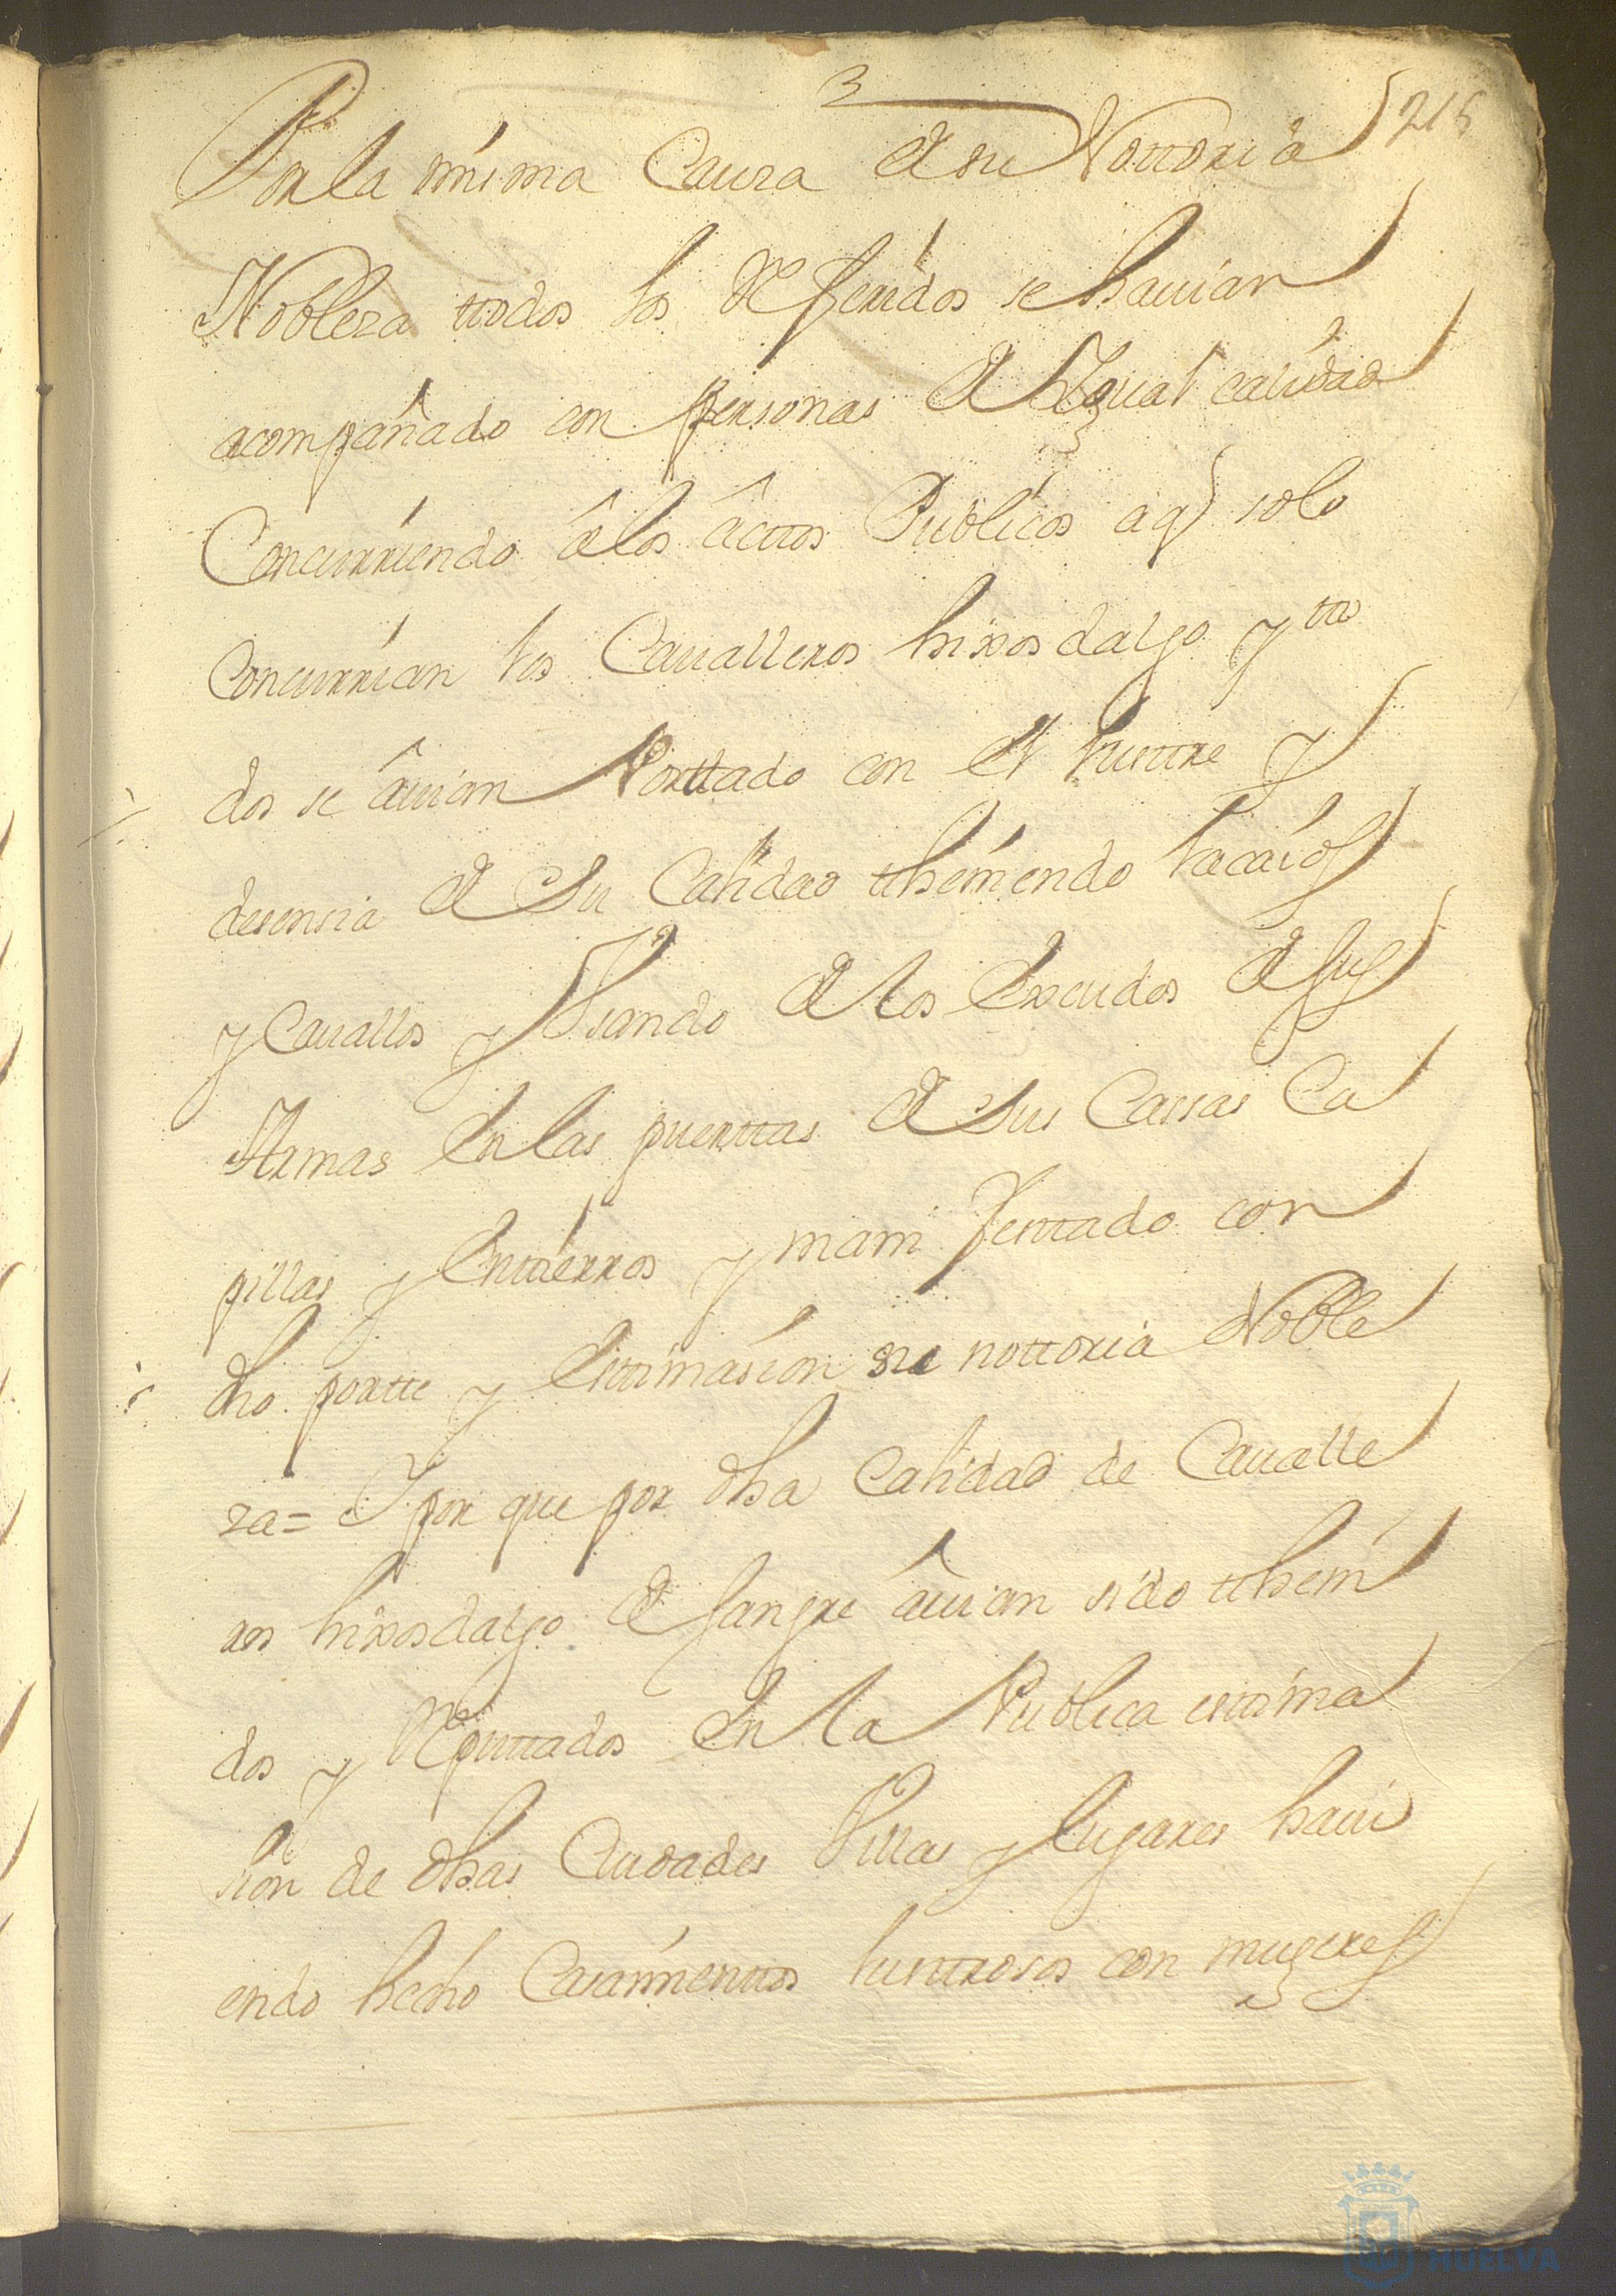 3
215
Por la misma Causa de su Nottoria
Nobleza ttodos los Referidos se hauian
acompañado con personas de Ygual calidad
Concurriendo â los âcttos Publicos a q solo
Concurrian los Caualleros hixosdalgo y tto
dos se âuian Porttado con el lusttre y
desensia de su Calidad ttheniendo lacaios
y Cauallos y Vsando de los Escudos de sus
Armas En las puerttas de sus Cassas Ca
pillas y Enttierros y manifesttado con
dho portte y Esttimasion su nottoria Noble
za= Y por que por dha Calidad de Caualle
ros hixosdalgo de sangre âuian sido ttheni
dos y Reputtados En la Publica esttima
sion de dhas Ciudades Villas y lugares haui
endo hecho Casamienttos lusttrosos con mugeres
HUELVA